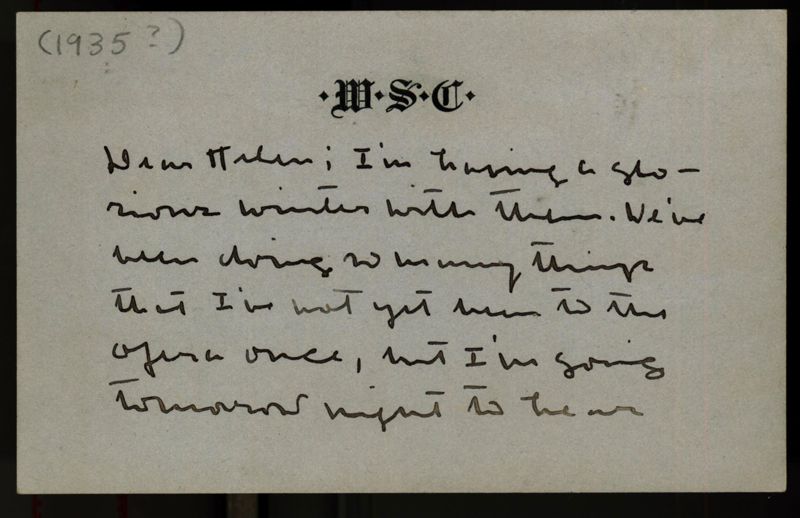 (1935?)
·W·S·C·
Dear Helen; I'm having a glo-
rious winter with them. We've
been doing so many things
that I've not yet been to the
opera once, but I'm going
tomorrow night to hear